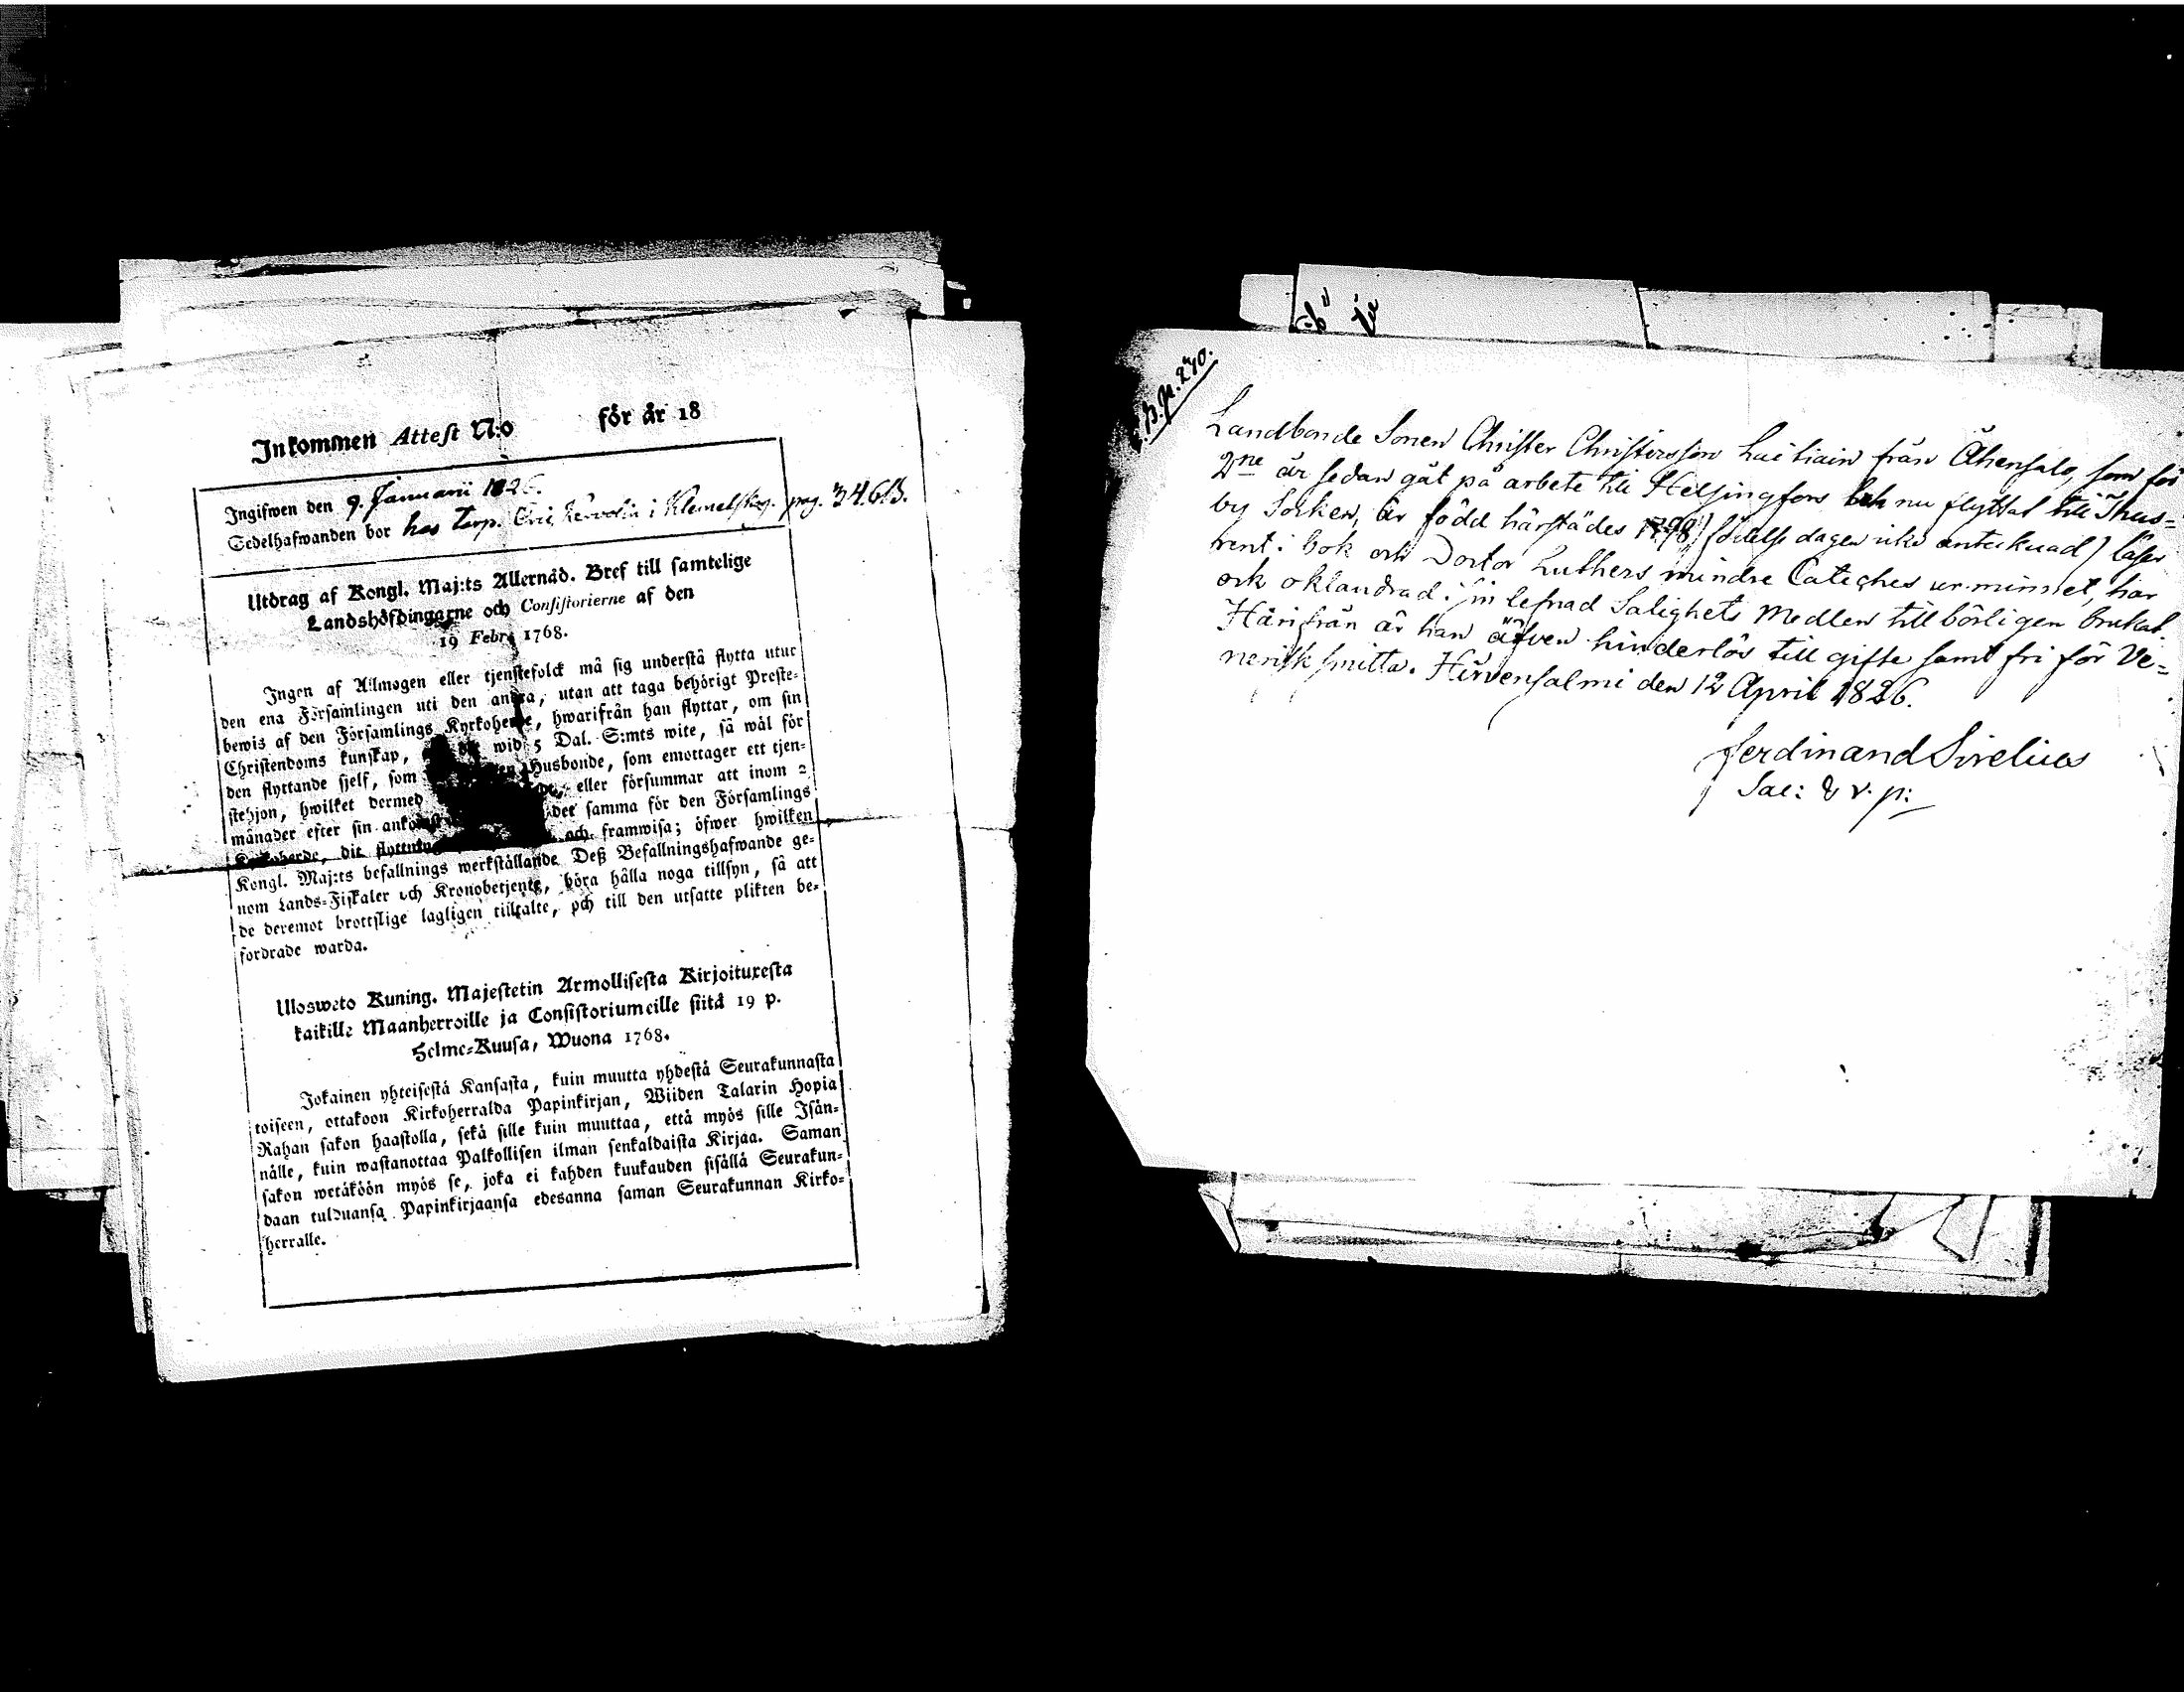 Inkommen Attest N:o för år 18
Ingifwen den 9. Januarii 1826.
Sedelhafwanden bor hos Torp. i Klemetskog. pag. 346.B.
Utdrag af Kongl. Maj:ts Allernåd. Bref till samtelige
Landshöfdingarne och Consistorierne af den
19 Febr. 1768.
Ingen af Allmogen eller tjenstefolck må sig understå flytta utur
den ena Församlingen uti den andra, utan att taga behörigt Preste-
bewis af den Församlings Kyrkoherde, hwarifrån han flyttar, om sin
Christendoms kunskap, wid 5 Dal. S:mts wite, så wäl för
den flyttande sjelf, som Husbonde, som emottager ett tjen-
stehjon, hwilket dermed eller försummar att inom 2
månader efter sin det samma för den Församlings
Kyrkoherde, dit och framwisa; öfwer hwilken
Kongl. Maj:ts befallnings werkställande Deß Befallningshafwande ge-
nom Lands-Fiskaler och Kronobetjente, böra hålla noga tillsyn, så att
de deremot brottslige lagligen tilltalte, och till den utsatte plikten be-
fordrade warda.
Ulosweto Kuning. Majestetin Armollisesta Kirjoituxesta
kaikille Maanherroille ja Consistoriumeille siitä 19 p.
Helme-Kuusa, Wuona 1768.
Jokainen yhteisestä Kansasta, kuin muutta yhdestä Seurakunnasta
toiseen, ottakoon Kirkoherralda Papinkirjan, Wiiden Talarin Hopia
Rahan sakon haastolla, sekä sille kuin muuttaa, että myös sille Isän-
nälle, kuin wastanottaa Palkollisen ilman senkaldaista Kirjaa. Saman
sakon wetäköön myös se, joka ei kahden kuukauden sisällä Seurakun-
daan tulduansa Papinkirjaansa edesanna saman Seurakunnan Kirko-
herralle.
B. p. 270.
Landbonde Sonen Christer Christersson från Ahensalo, som för
2ne år sedan gåt på arbete till Helsingfors och nu flyttat till Thus-
by Socken, är född härstädes 1798) födelse dagen icke antecknad) läser
rent i bok och Doctor Luthers mindre Cateches ur minnet, har
och oklandrad i sin lefnad Salighets Medlen tillbörligen brukat.
Härifrån är han äfven hinderlös till gifte samt fri för Ve-
nerisk smitta. Hirvensalmi den 12 April 1826.
Ferdinand Sirelius
Sac: & v. p: